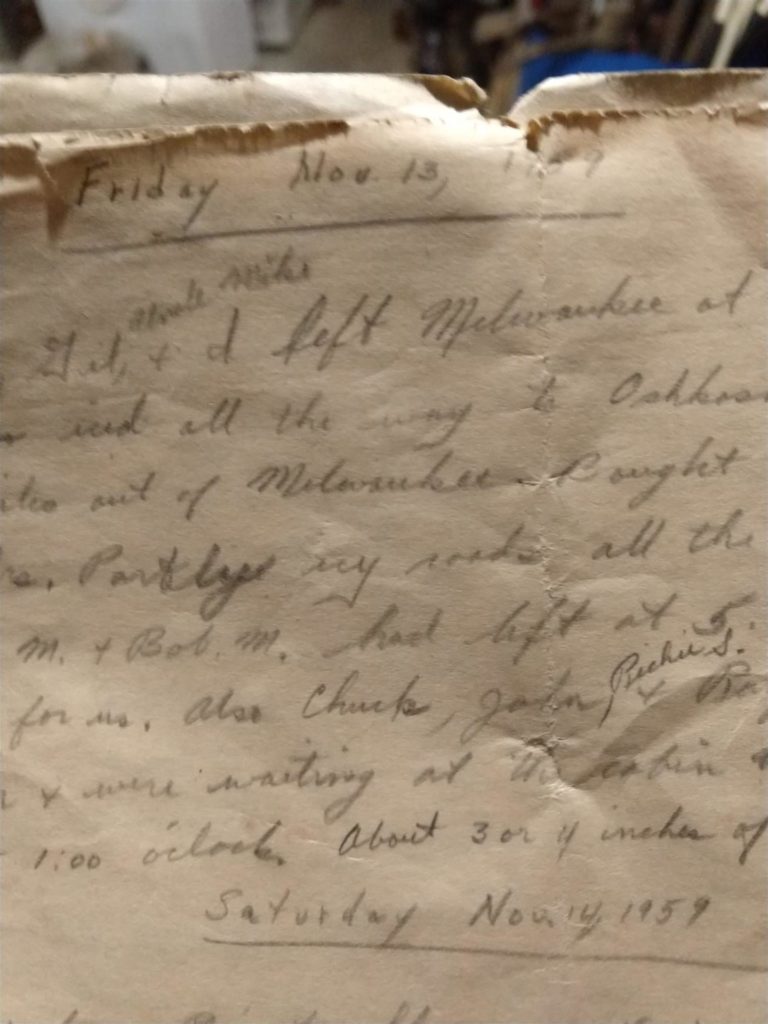 Friday Nov. 13, 1959
Uncle Mike
Gil, & I left Milwaukee at
iced all the way to Oshkos
out of Milwaukee. Caught
rs. Partly icy roads all the
M. & Bob. M. had left at 5.
Richie S.
for us. Also Chuck, John, &
& were waiting at the cabin
1:00 o'clock. About 3 or 4 inches of
Saturday Nov. 14, 1959